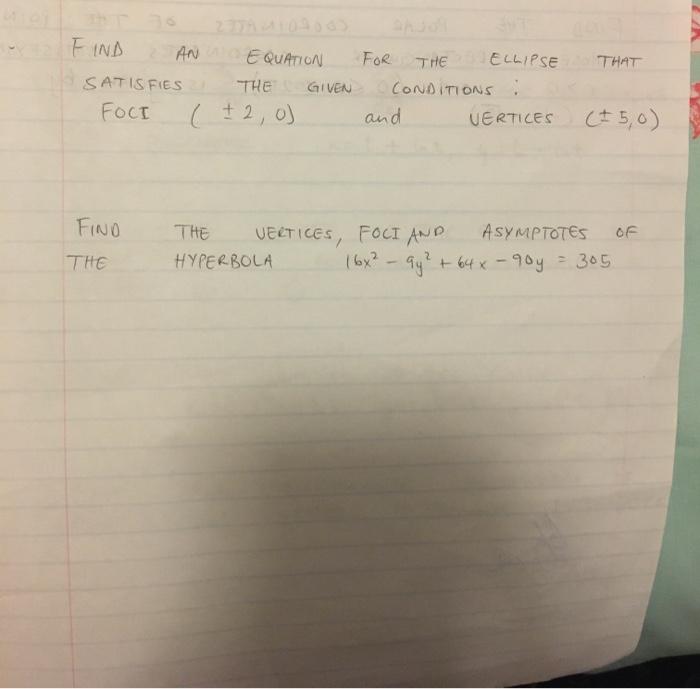 FIND AN EQUATION FOR THE ELLIPSE THAT
SATISFIES THE GIVEN CONDITIONS :
FOCI ( ± 2, 0) and VERTICES (± 5, 0)
FIND THE VERTICES, FOCI AND ASYMPTOTES OF
THE HYPERBOLA 16x² - 9y² + 64x - 90y = 305